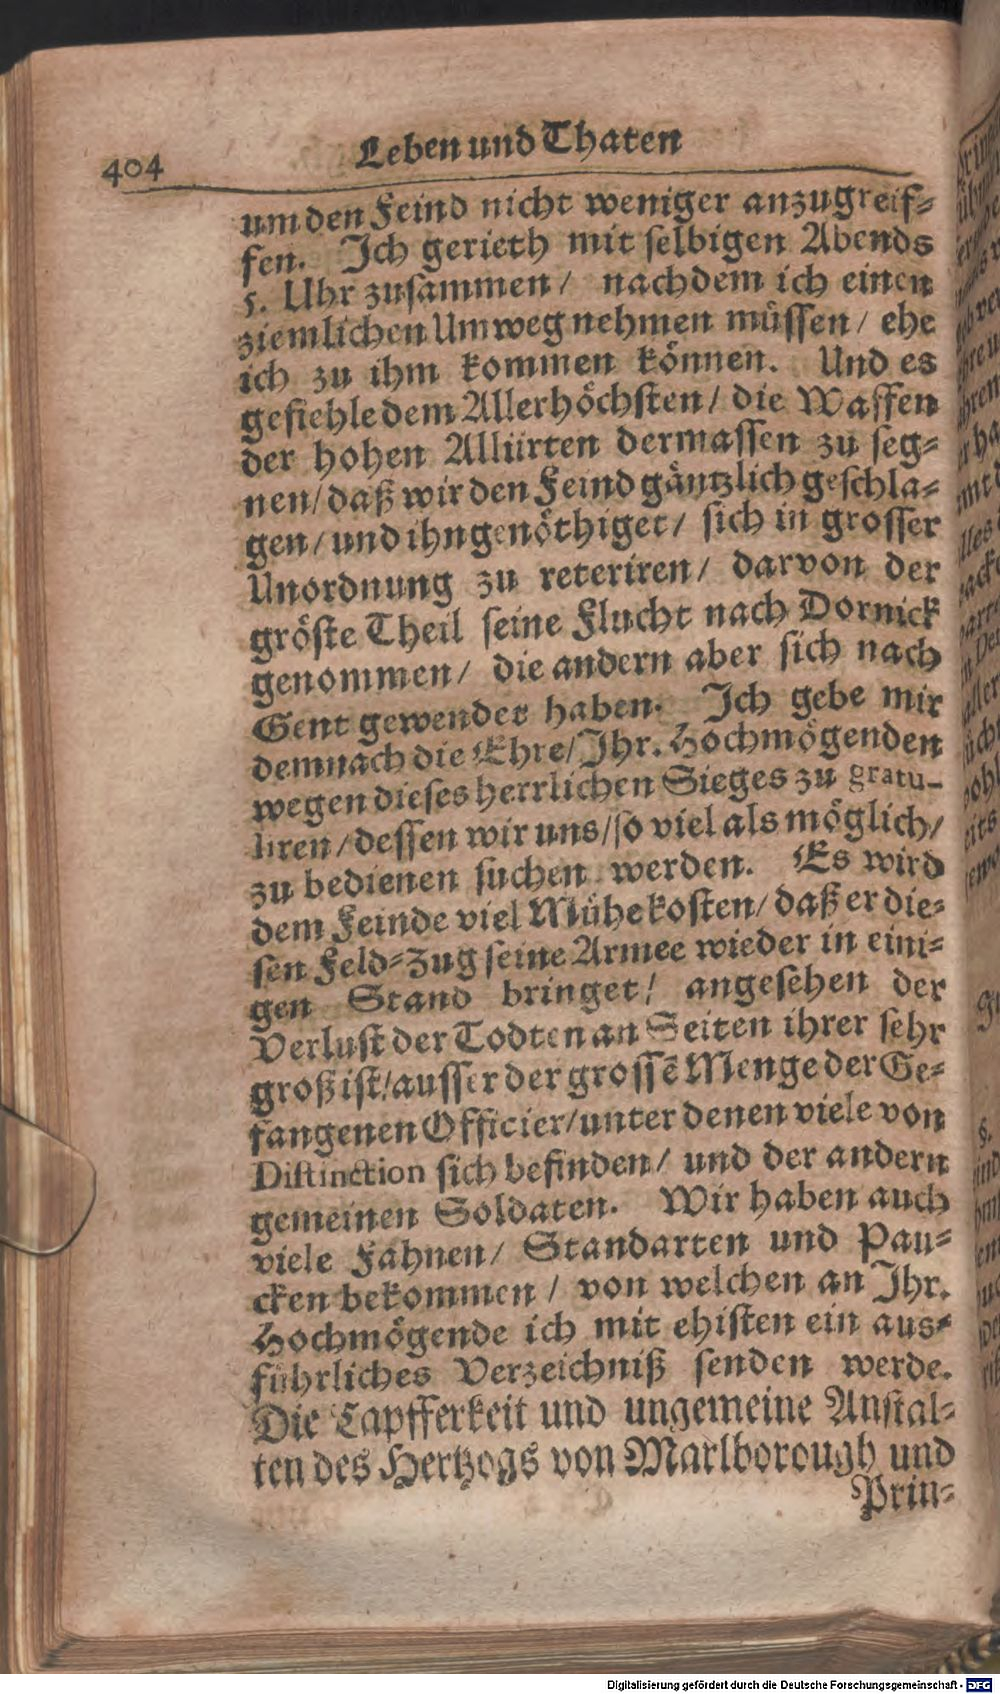 404 Leben und Thaten
um den Feind nicht weniger anzugreif⸗
fen. Ich gerieth mit selbigen Abends
5. Uhr zusammen / nachdem ich einen
ziemlichen Umweg nehmen müssen / ehe
ich zu ihm kommen können. Und es
gefiehle dem Allerhöchsten / die Waffen
der hohen Alliirten dermassen zu seg⸗
nen / daß wir den Feind gäntzlich geschla⸗
gen / und ihn genöthiget / sich in grosser
Unordnung zu reteriren / darvon der
gröste Theil seine Flucht nach Dornick
genommen / die andern aber sich nach
Gent gewendet haben. Ich gebe mir
demnach die Ehre / Ihr. Hochmögenden
wegen dieses herrlichen Sieges zu gratu-
liren / dessen wir uns / so viel als möglich /
zu bedienen suchen werden. Es wird
dem Feinde viel Mühe kosten / daß er die⸗
sen Feld⸗Zug seine Armee wieder in eini⸗
gen Stand bringet / angesehen der
Verlust der Todten an Seiten ihrer sehr
groß ist / ausser der grossē Menge der Ge⸗
fangenen Officier / unter denen viele von
Distinction sich befinden / und der andern
gemeinen Soldaten. Wir haben auch
viele Fahnen / Standarten und Pau⸗
cken bekommen / von welchen an Ihr.
Hochmögende ich mit ehisten ein aus⸗
führliches Verzeichniß senden werde.
Die Tapfferkeit und ungemeine Anstal⸗
ten des Hertzogs von Marlborough und
Prin⸗
Digitalisierung gefördert durch die Deutsche Forschungsgemeinschaft - DFG